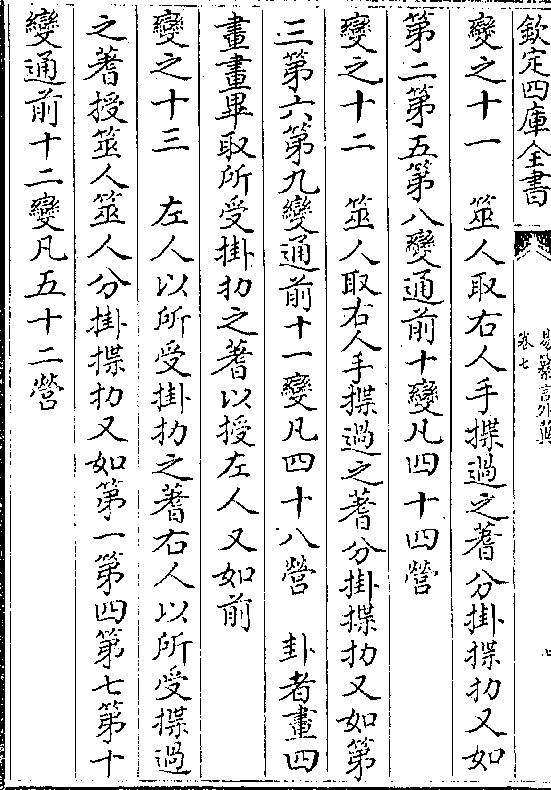 欽定四庫全書
易纂言外翼
卷七
七
變之十一　筮人取右人手揲過之蓍分掛揲扐又如
第二第五第八變通前十變凡四十四營
變之十二　筮人取右人手揲過之蓍分掛揲扐又如第
三第六第九變通前十一變凡四十八營　卦者畫四
畫畫畢取所受掛扐之蓍以授左人又如前
變之十三　左人以所受掛扐之蓍右人以所受揲過
之蓍授筮人筮人分掛揲扐又如第一第四第七第十
變通前十二變凡五十二營